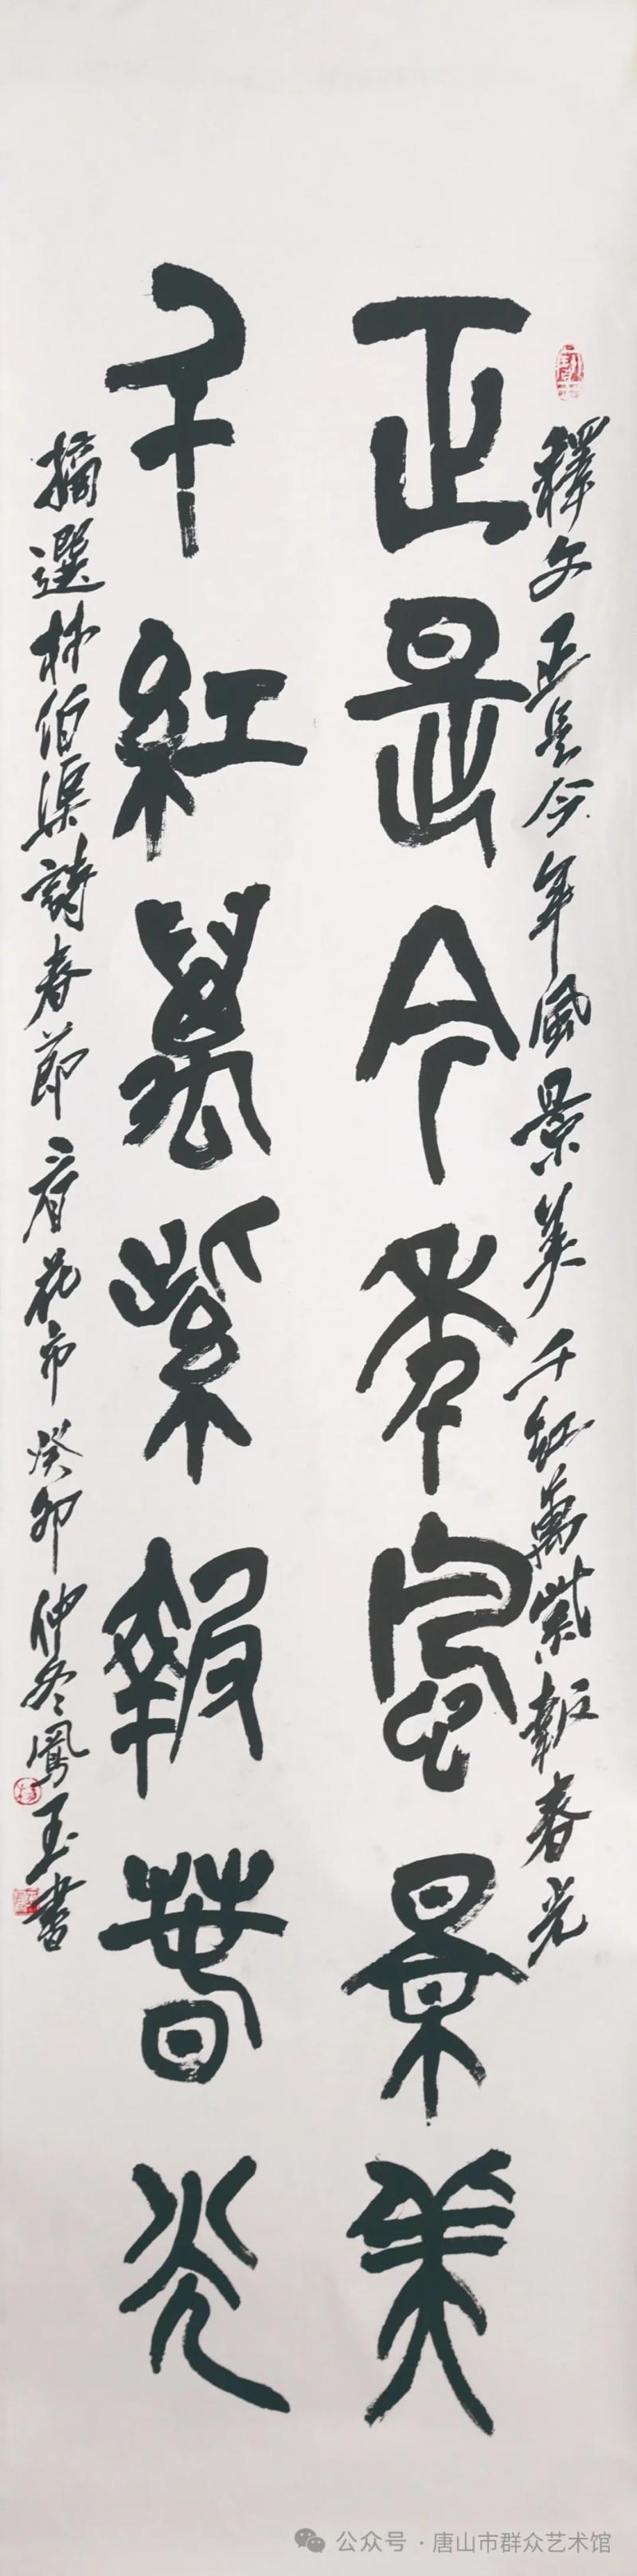 釋文正是今年風景美千紅萬紫報春光
正是今年風景美
千紅萬紫報春光
摘選林伯渠詩春節看花市癸卯仲冬鳳玉書
公众号·唐山市群众艺术馆